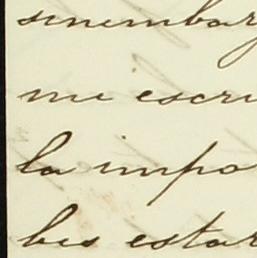 sinembarg
me escri
la impo
bes estar